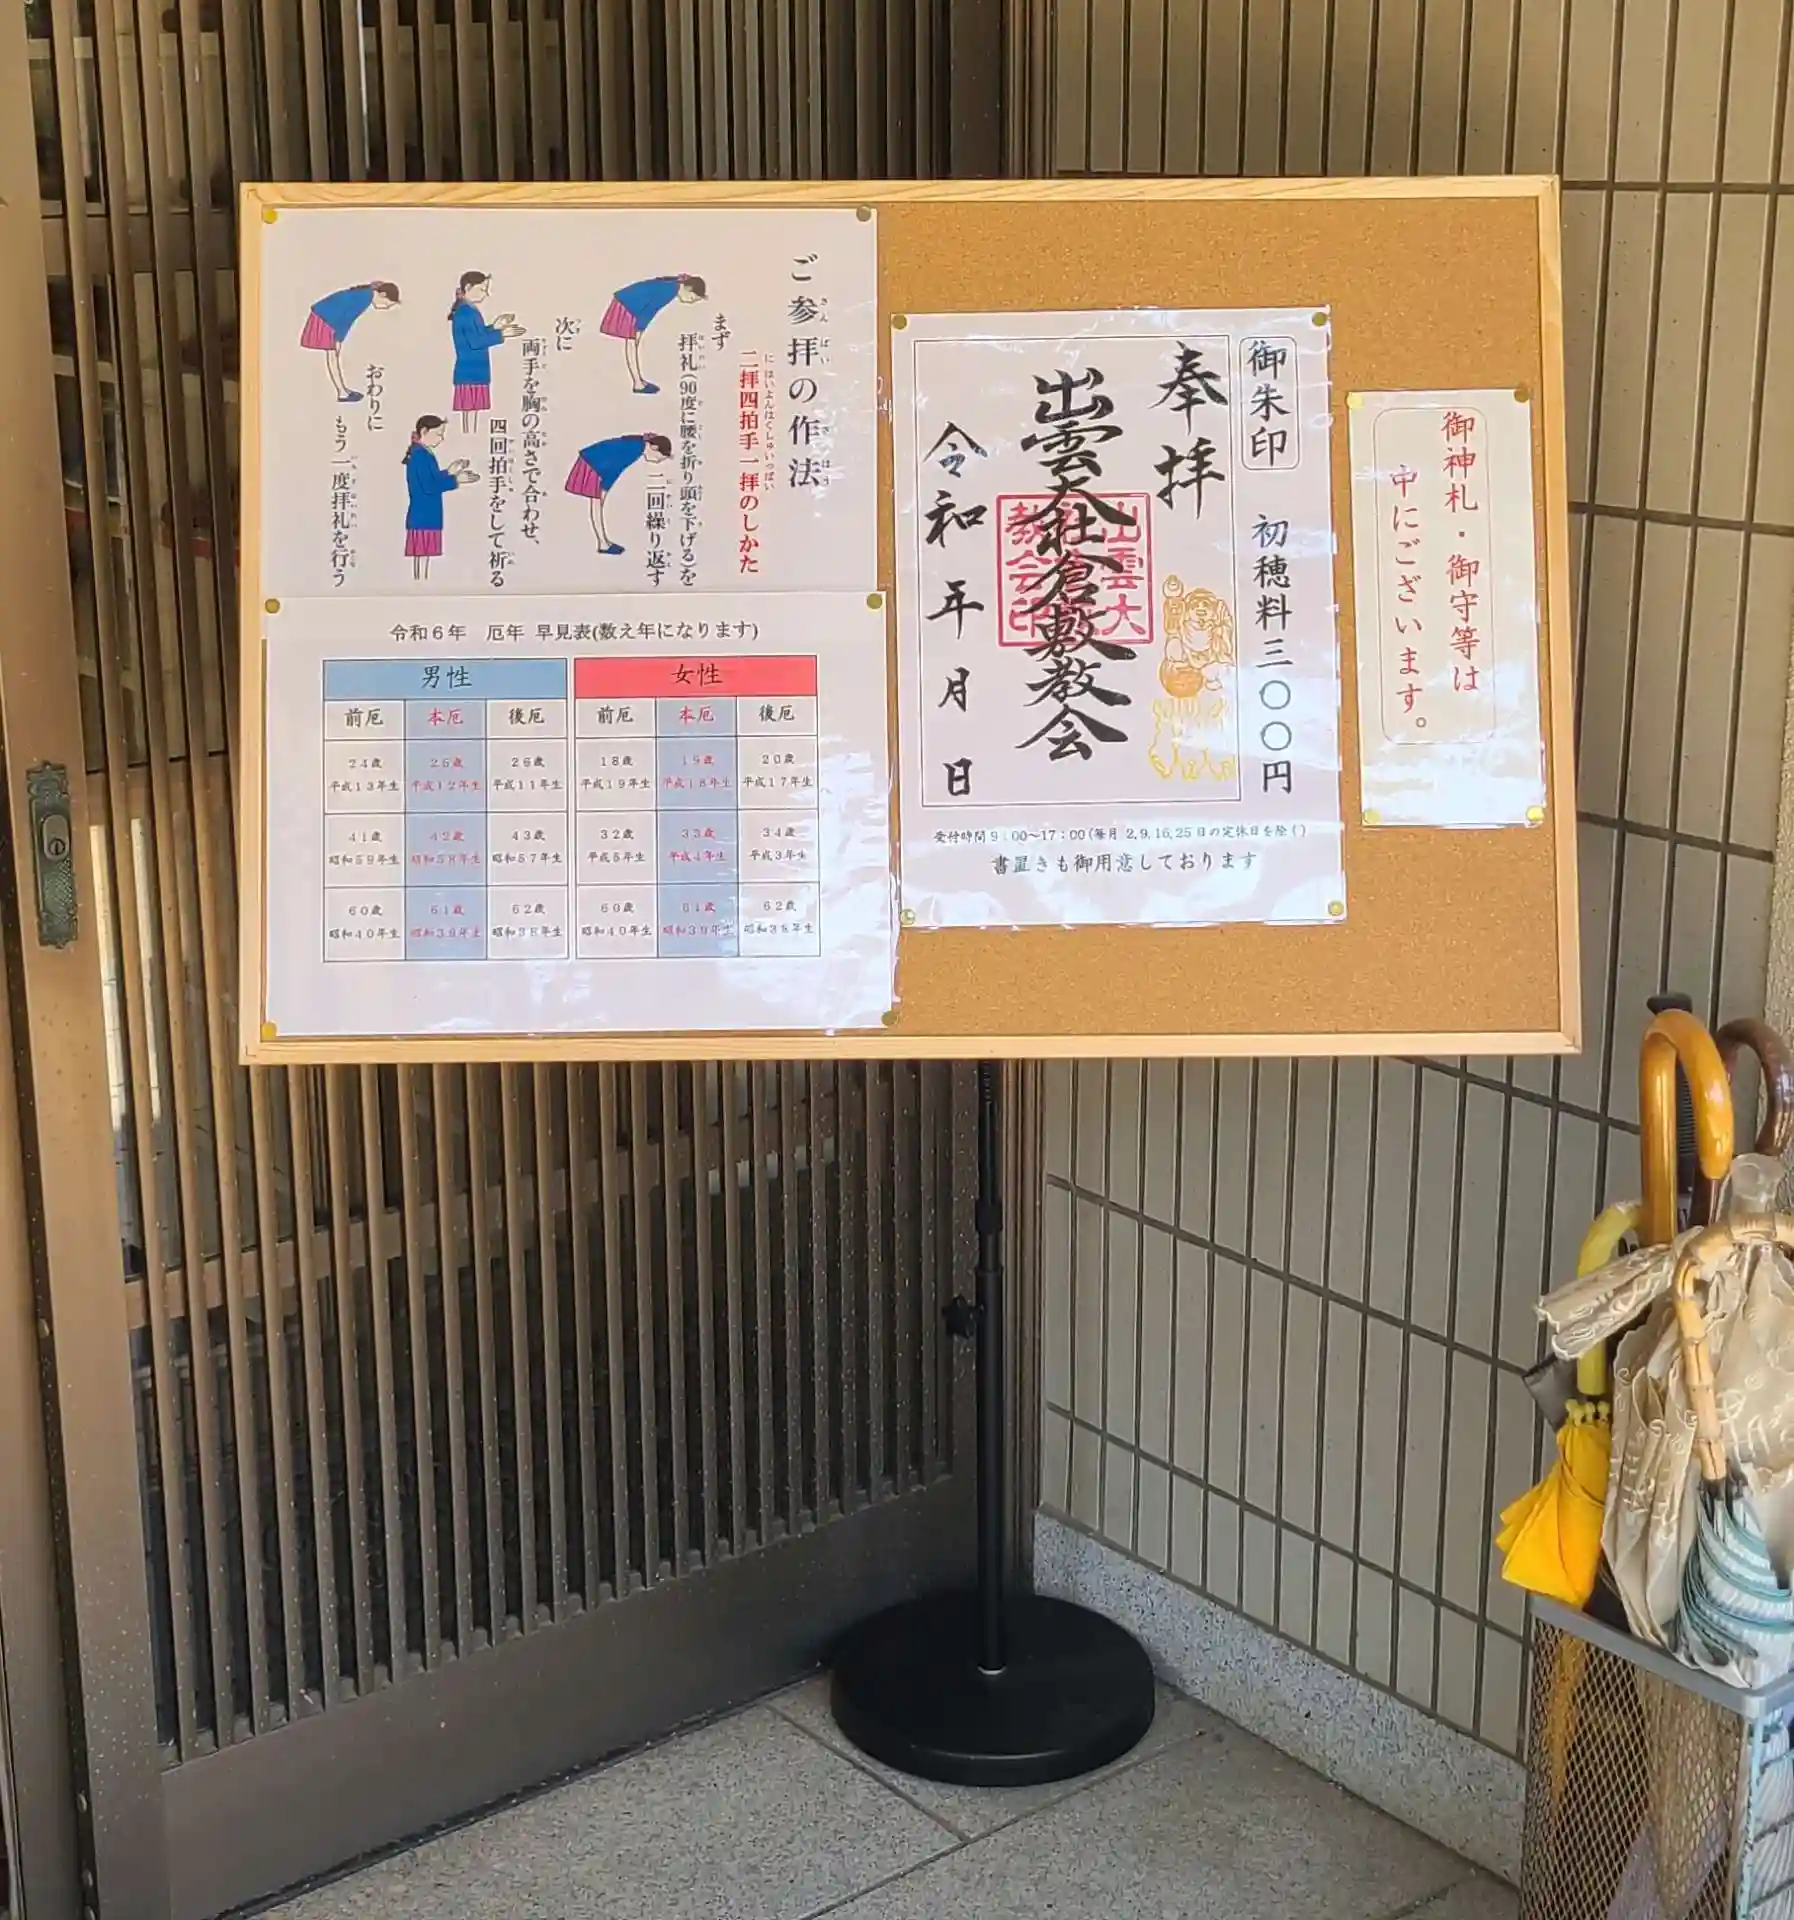 ご参拝の作法
二拝四拍手一拝のしかた
まず
拝礼(90度に腰を折り頭を下げる)を
二回繰り返す
次に
両手を胸の高さで合わせ、
四回拍手をして祈る
おわりに
もう一度拝礼を行う
令和6年 厄年 早見表(数え年になります)
男性 女性
前厄 本厄 後厄 前厄 本厄 後厄
24歳 25歳 26歳 18歳 19歳 20歳
平成13年生 平成12年生 平成11年生 平成19年生 平成18年生 平成17年生
41歳 42歳 43歳 32歳 33歳 34歳
昭和59年生 昭和58年生 昭和57年生 平成5年生 平成4年生 平成3年生
60歳 61歳 62歳 60歳 61歳 62歳
昭和40年生 昭和39年生 昭和38年生 昭和40年生 昭和39年生 昭和38年生
御朱印 初穂料三〇〇円
奉拝
出雲大社倉敷教会
令和 年 月 日
受付時間9:00~17:00(毎月 2,9,16,25日の定休日を除く)
書置きも御用意しております
御神札・御守等は
中にございます。